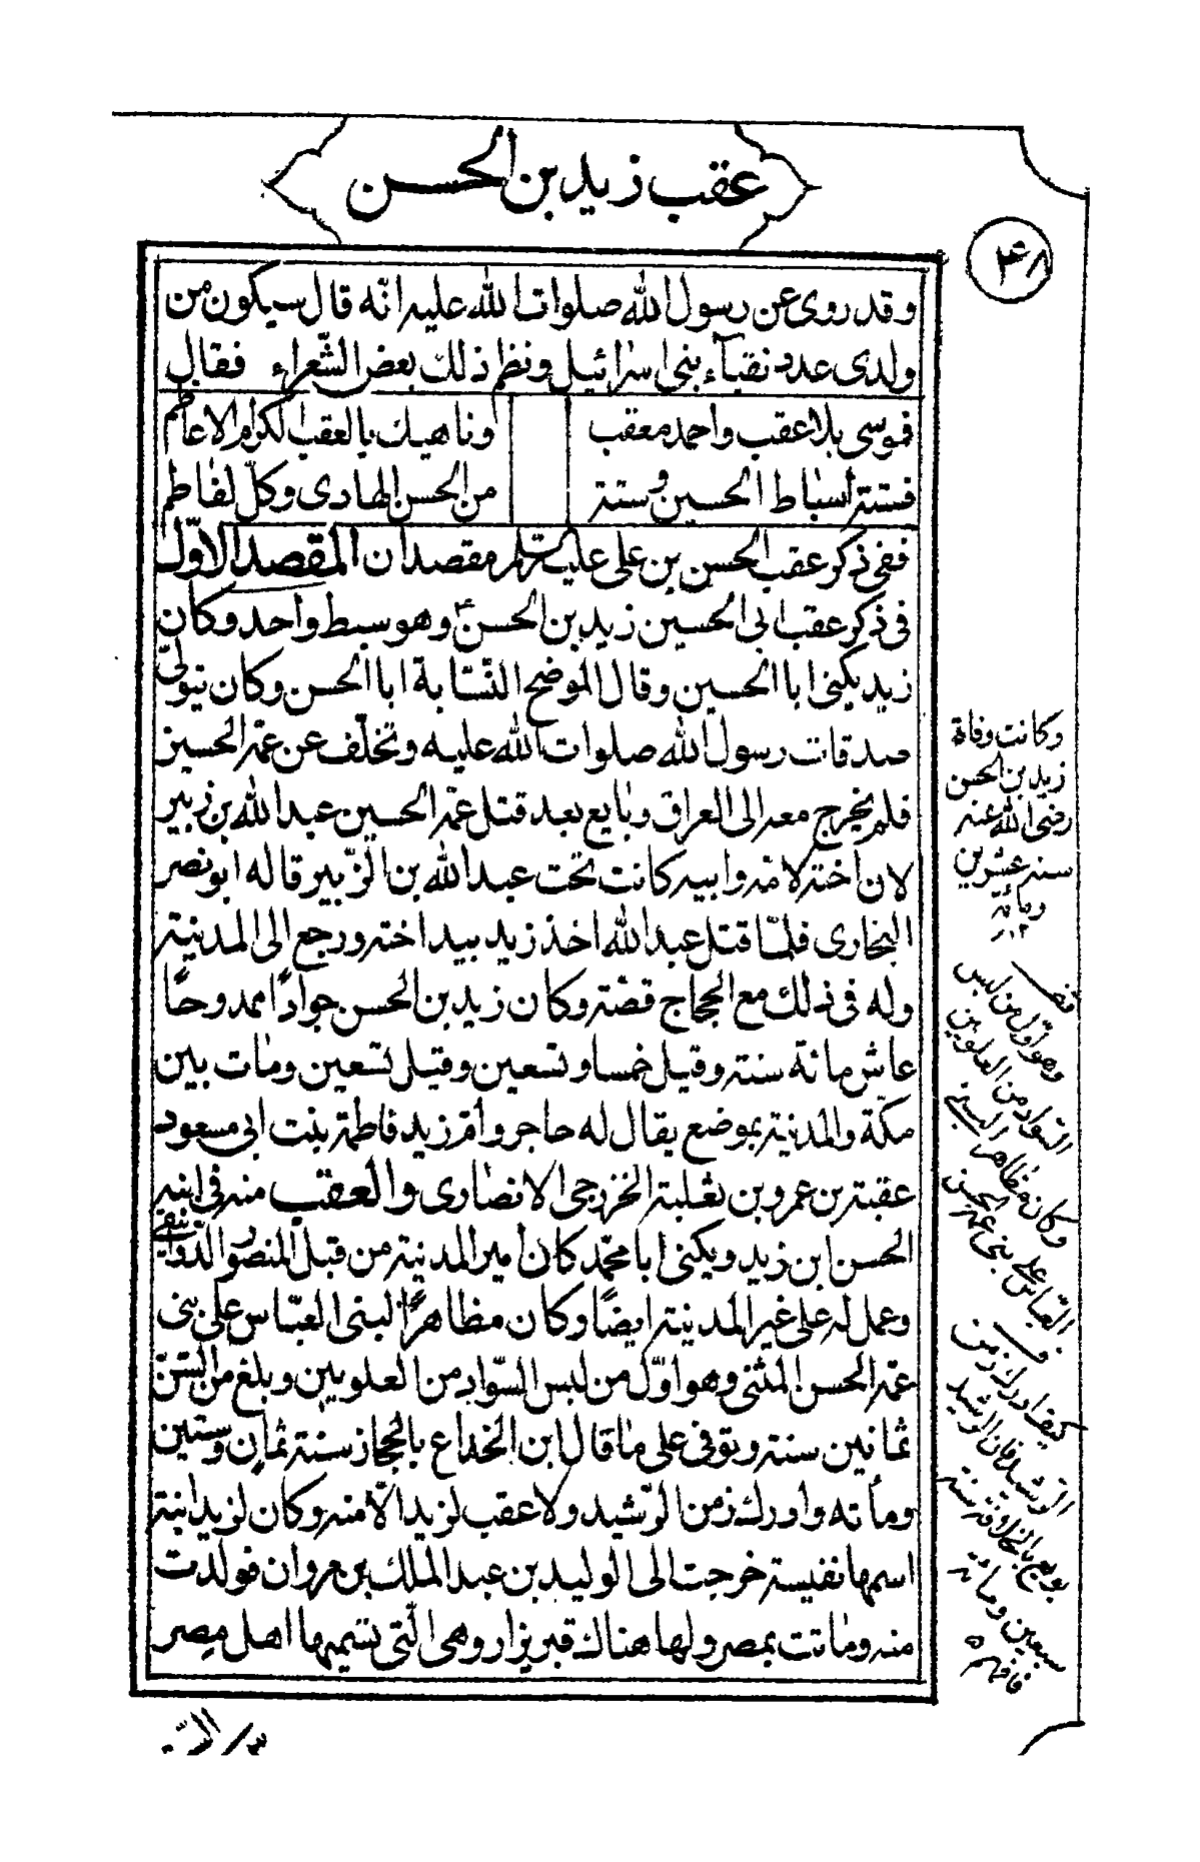 عقب زيد بن الحسن
۴۸
وقد روى عن رسول الله صلوات الله عليه انّه قال سيكون من
ولدى عدد نقبآء بنى اسرائيل ونظم ذلك بعض الشّعراء فقال
فموسى بلا عقب واحمد معقب وناهيك بالعقب الكرام الاعاظم
فستة أسباط الحسين وستة من الحسن الهادى وكلّ لفاطم
ففى ذكر عقب الحسن بن على عليه السّلم مقصدان المقصد الاوّل
فى ذكر عقب ابى الحسين زيد بن الحسن ع وهو سبط واحد وكان
زيد يكنى ابا الحسين وقال الموضح النسّابة ابا الحسن وكان يتولى
صدقات رسول الله صلوات الله عليه وتخلّف عن عمّه الحسين
فلم يخرج معه الى العراق وبايع بعد قتل عمّه الحسين عبد الله بن زبير
لان أخته لامّه وابيه كانت تحت عبد الله بن الزّبير قاله ابو نصر
البخارى فلمّا قتل عبد الله اخذ زيد بيد اخته ورجع الى المدينة
وله فى ذلك مع الحجاج قصّة وكان زيد بن الحسن جوادًا ممدوحًا
عاش مائة سنة وقيل خمسا وتسعين وقيل تسعين ومات بين
مكة والمدينة بموضع يقال له حاجر وأم زيد فاطمة بنت ابى مسعود
عقبة بن عمرو بن ثعلبة الخزرجى الانصارى والعقب منه فى ابنه
الحسن ابن زيد ويكنى ابا محمّد كان أمير المدينة من قبل المنصور الدّوانيقى
وعمل له على غير المدينة ايضًا وكان مظاهرًا لبنى العبّاس على بنى
عمّه الحسن المثنى وهو اوّل من لبس السّواد من العلويين وبلغ من السّن
ثمانين سنة وتوفى على ما قال ابن الخداع بالحجاز سنة ثمان وستين
ومأته وادرك زمن الرّشيد ولا عقب لزيد الّا منه وكان لزيد ابنة
اسمها نفيسة خرجت الى الوليد بن عبد الملك بن مروان فولدت
منه وماتت بمصر ولها هناك قبر يزار وهى الّتى تسمّيها اهل مصر
وكانت وفاة
زيد بن الحسن
رضى الله عنه
سنة عشرين
ومائة
۱۲۰
وهو اوّل من لبس
السّواد من العلويين
وكان مظاهرا لبنى
العبّاس على بنى عمّه الحسن
كيف ادرك زمن
الرّشيد فان الرشيد
بويع بالخلافة سنة
سبعين ومائة
فافهم